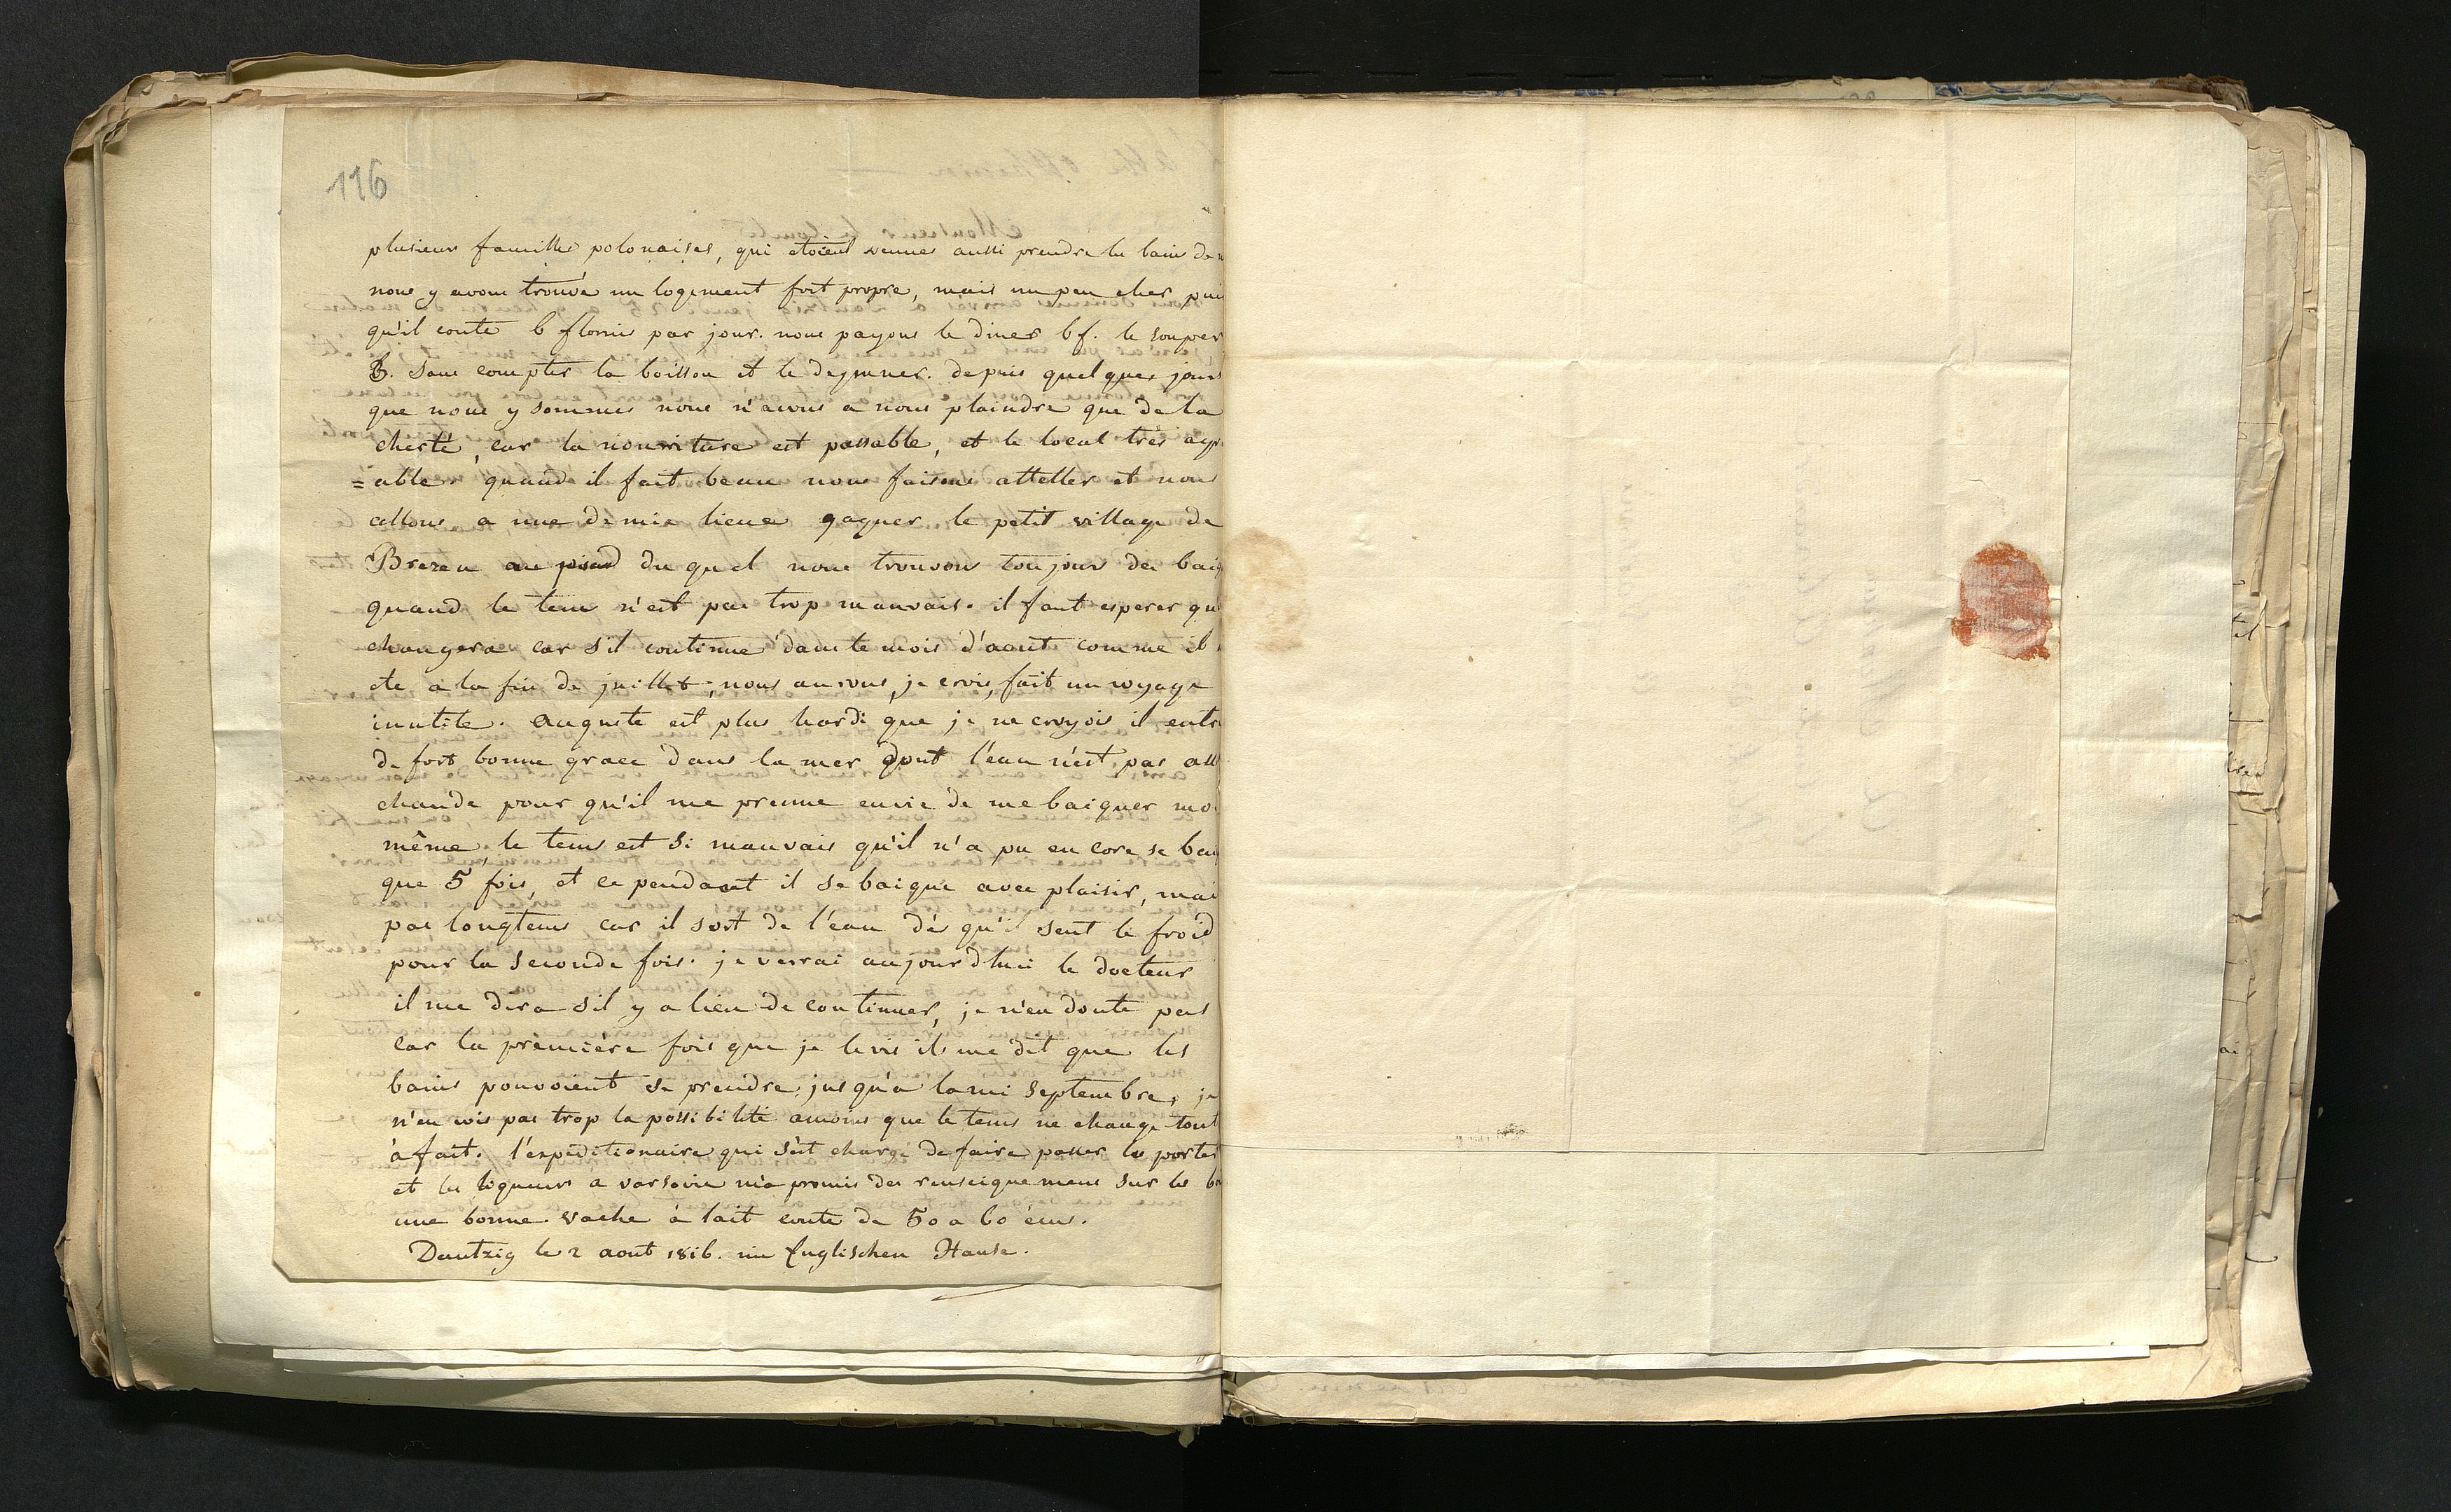 116
plusieurs familles polonaises, qui etoient venues aussi prendre les bains de
nous y avons trouvé un logement fort propre, mais un peu cher puis
qu'il coute 6 florins par jour. nous payons le diner 6 f. le souper
3. sans compter la boisson et le dejeuner. depuis quelques jours
que nous y sommes nous n'avons a nous plaindre que de la
cherté, car la nourriture est passable, et le local très agré
=able. quand il fait beau nous faisons atteller et nous
allons a une demie lieue gagner le petit village de
Brezen au du quel nous trouvons toujours des baig
quand le tems n'est pas trop mauvais. il faut esperer qu
changera car s'il continue dans le mois d'aout comme il
ete a la fin de juillet, nous aurons, je crois, fait un voyage
inutile. auguste est plus hardi que je ne croyois il entr
de fort bonne grace dans la mer dont l'eau n'est pas ass
chaude pour qu'il me prenne envie de me baigner moi
même, le tems est si mauvais qu'il n'a pu encore se baig
que 5 fois, et cependant il se baigne avec plaisir, mai
pas longtems car il sort de l'eau dès qu'il sent le froid
pour la seconde fois. je verrai aujourdhui le docteur
il me dira s'il y a lieu de continuer, je n'en doute pas
car la première fois que je le vis il me dit que les
bains pouvoient se prendre jusqu'a la mi septembre, je
n'en vois pas trop la possibilité amoins que le tems ne change tout
à fait. l'expeditionaire qui s'est chargé de faire passer les porter
et les liqueurs à varsovie m'a promis des renseignemens sur les
une bonne vache à lait coute de 50 a 60 écus.
Dantzig le 2 aout 1816. im Englischen Hause.